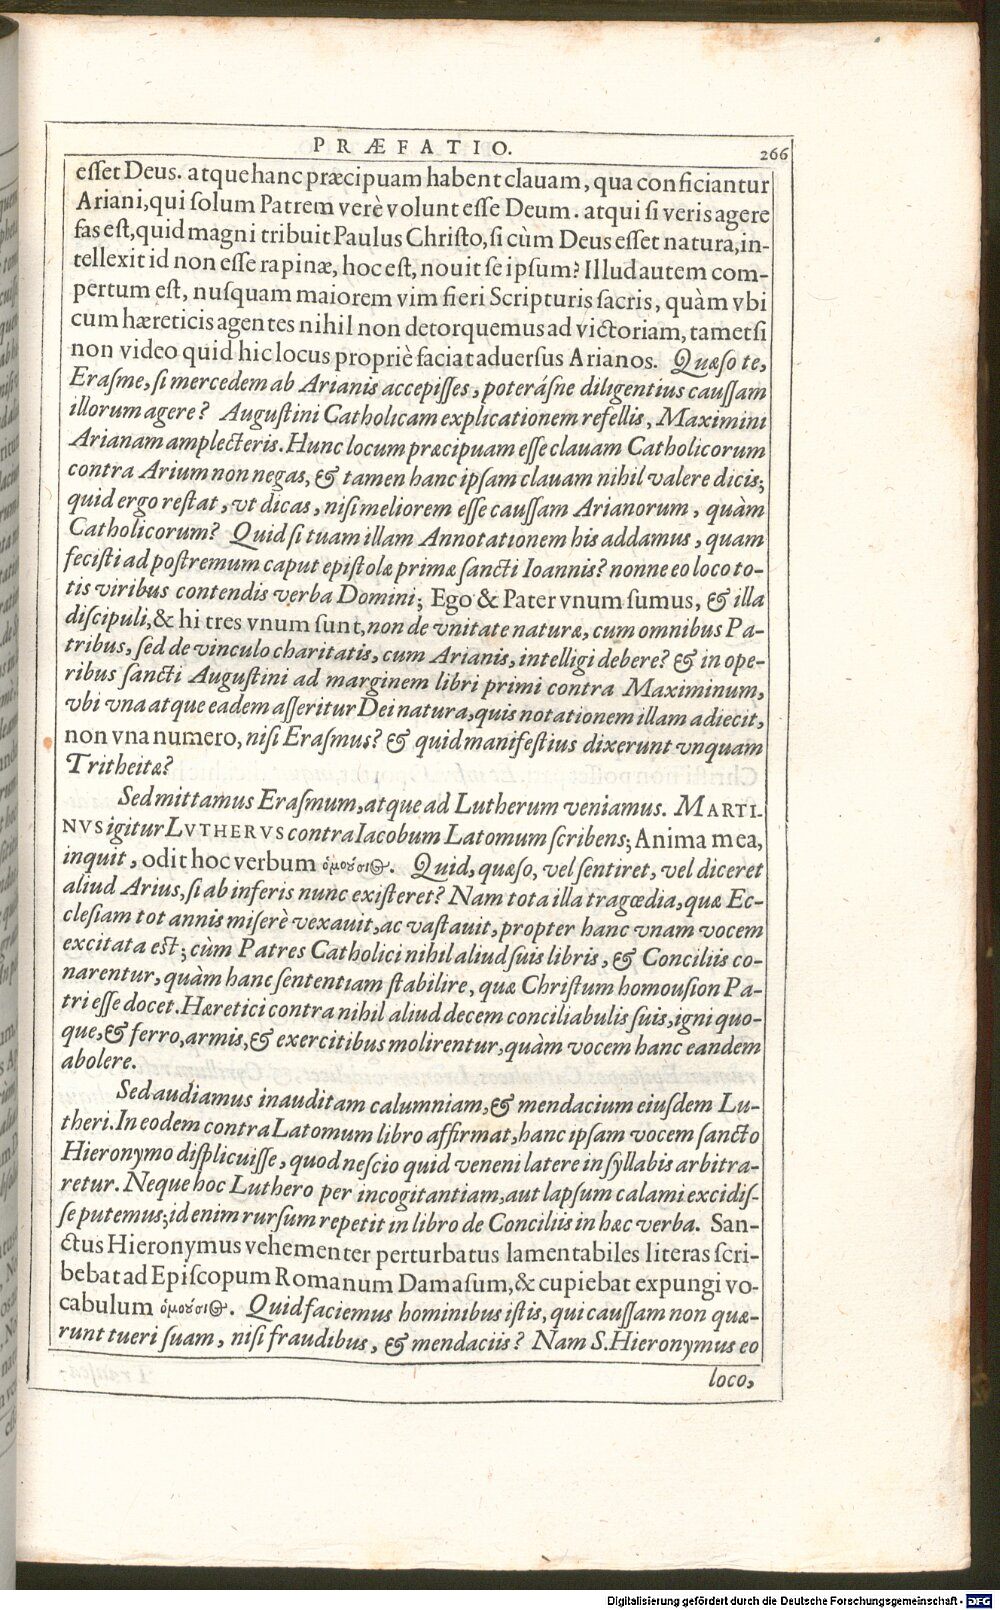 PRÆFATIO.
266
eſſet Deus. atque hanc præcipuam habent clauam, qua conficiantur
Ariani, qui ſolum Patrem verè volunt eſſe Deum. atqui ſi veris agere
fas eſt, quid magni tribuit Paulus Chriſto, ſi cùm Deus eſſet natura, in-
tellexit id non eſſe rapinæ, hoc eſt, nouit ſe ipſum? Illud autem com-
pertum eſt, nuſquam maiorem vim fieri Scripturis ſacris, quàm vbi
cum hæreticis agentes nihil non detorquemus ad victoriam, tametſi
non video quid hic locus propriè faciat aduerſus Arianos. Quæſo te,
Eraſme, ſi mercedem ab Arianis accepiſſes, poteráſne diligentius cauſſam
illorum agere? Auguſtini Catholicam explicationem refellis, Maximini
Arianam amplecteris. Hunc locum præcipuam eſſe clauam Catholicorum
contra Arium non negas, & tamen hanc ipſam clauam nihil valere dicis;
quid ergo reſtat, vt dicas, niſi meliorem eſſe cauſſam Arianorum, quàm
Catholicorum? Quid ſi tuam illam Annotationem his addamus, quam
feciſti ad poſtremum caput epiſtolæ primæ ſancti Ioannis? nonne eo loco to-
tis viribus contendis verba Domini; Ego & Pater vnum ſumus, & illa
diſcipuli, & hi tres vnum ſunt, non de vnitate naturæ, cum omnibus Pa-
tribus, ſed de vinculo charitatis, cum Arianis, intelligi debere? & in ope-
ribus ſancti Auguſtini ad marginem libri primi contra Maximinum,
vbi vna atque eadem aſſeritur Dei natura, quis notationem illam adiecit,
non vna numero, niſi Eraſmus? & quid manifeſtius dixerunt vnquam
Tritheitæ?
Sed mittamus Eraſmum, atque ad Lutherum veniamus. MARTI-
NVS igitur LVTHERVS contra Iacobum Latomum ſcribens; Anima mea,
inquit, odit hoc verbum ὁμούσιος. Quid, quæſo, vel ſentiret, vel diceret
aliud Arius, ſi ab inferis nunc exiſteret? Nam tota illa tragœdia, quæ Ec-
cleſiam tot annis miſerè vexauit, ac vaſtauit, propter hanc vnam vocem
excitata eſt; cùm Patres Catholici nihil aliud ſuis libris, & Conciliis co-
narentur, quàm hanc ſententiam ſtabilire, quæ Chriſtum homouſion Pa-
tri eſſe docet. Hæretici contra nihil aliud decem conciliabulis ſuis, igni quo-
que, & ferro, armis, & exercitibus molirentur, quàm vocem hanc eandem
abolere.
Sed audiamus inauditam calumniam, & mendacium eiuſdem Lu-
theri. In eodem contra Latomum libro affirmat, hanc ipſam vocem ſancto
Hieronymo diſplicuiſſe, quod neſcio quid veneni latere in ſyllabis arbitra-
retur. Neque hoc Luthero per incogitantiam, aut lapſum calami excidiſ-
ſe putemus; id enim rurſum repetit in libro de Conciliis in hæc verba. San-
ctus Hieronymus vehementer perturbatus lamentabiles literas ſcri-
bebat ad Epiſcopum Romanum Damaſum, & cupiebat expungi vo-
cabulum ὁμούσιος. Quid faciemus hominibus iſtis, qui cauſſam non quæ-
runt tueri ſuam, niſi fraudibus, & mendaciis? Nam S. Hieronymus eo
loco,
Digitalisierung gefördert durch die Deutsche Forschungsgemeinschaft - DFG